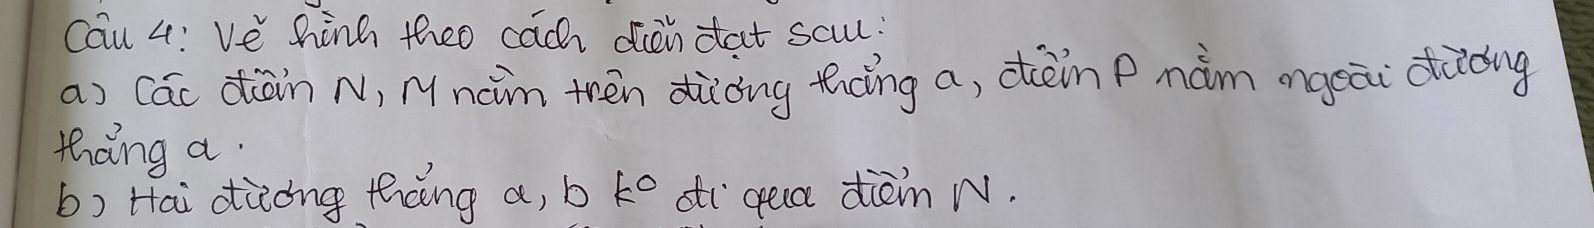 Câu 4: Vẽ hình theo cách diễn đạt sau:
a) Các điểm N, M nằm trên đường thẳng a, điểm P nằm ngoài đường
thẳng a.
b) Hai đường thẳng a, b kº đi qua điểm N.